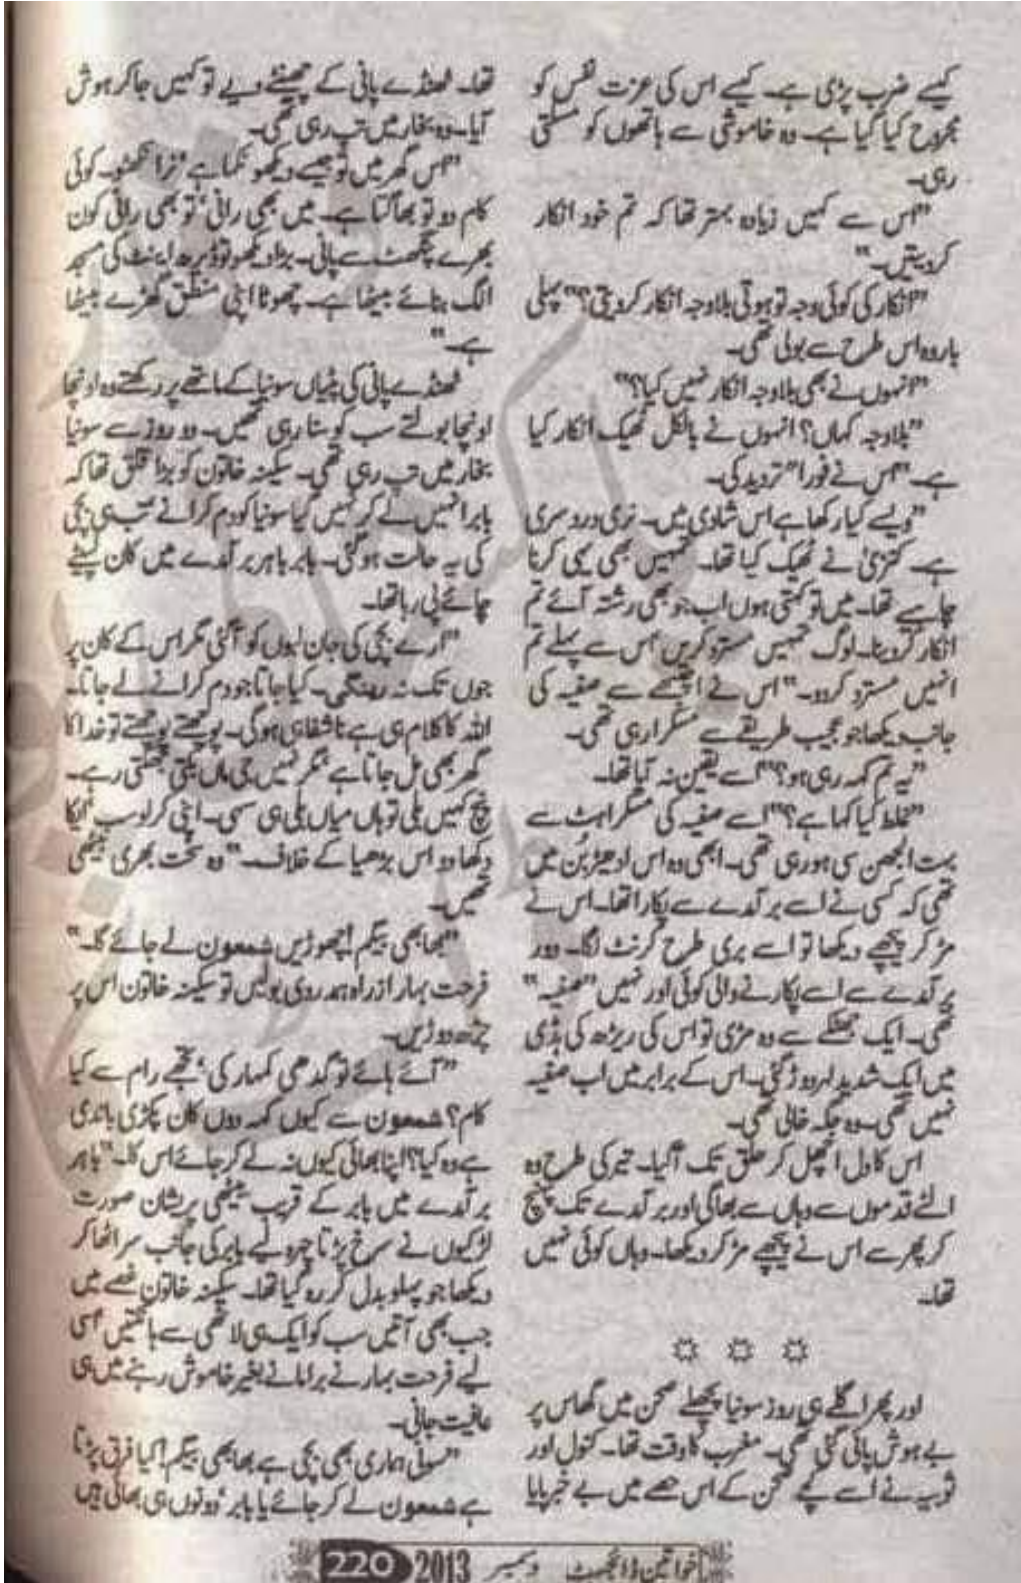 کیسے ضرب پڑی ہے۔ کیسے اس کی عزت نفس کو
مجروح کیا گیا ہے۔ وہ خاموشی سے ہاتھوں کو مسلتی
رہی۔
"اس سے کہیں زیادہ بہتر تھا کہ تم خود انکار
کر دیتیں۔"
"انکار کی کوئی وجہ تو ہوتی بلاوجہ انکار کر دیتی؟" پہلی
بار وہ اس طرح سے بولی تھی۔
"انہوں نے بھی بلاوجہ انکار نہیں کیا؟"
"بلاوجہ کہاں؟ انہوں نے بالکل ٹھیک انکار کیا
ہے۔" اس نے فوراً تردید کی۔
"ویسے کیا رکھا ہے اس شادی میں۔ نری درد سری
ہے۔ کنزیٰ نے ٹھیک کیا تھا۔ تمہیں بھی یہی کرنا
چاہیے تھا۔ میں تو کہتی ہوں اب جو بھی رشتہ آئے تم
انکار کر دینا۔ لوگ تمہیں مسترد کریں اس سے پہلے تم
انہیں مسترد کر دو۔" اس نے اچنبھے سے صفیہ کی
جانب دیکھا جو عجیب طریقے سے مسکرا رہی تھی۔
"یہ تم کہہ رہی ہو؟" اسے یقین نہ آیا تھا۔
"غلط کیا کہا ہے؟" اسے صفیہ کی مسکراہٹ سے
بہت الجھن سی ہو رہی تھی۔ ابھی وہ اس ادھیڑبن میں
تھی کہ کسی نے اسے برآمدے سے پکارا تھا۔ اس نے
مڑ کر پیچھے دیکھا تو اسے بری طرح کرنٹ لگا۔ دور
برآمدے سے اسے پکارنے والی کوئی اور نہیں "صفیہ"
تھی۔ ایک جھٹکے سے وہ مڑی تو اس کی ریڑھ کی ہڈی
میں ایک شدید لہر دوڑ گئی۔ اس کے برابر میں اب صفیہ
نہیں تھی۔ وہ جگہ خالی تھی۔
اس کا دل اچھل کر حلق تک آ گیا۔ تیر کی طرح وہ
الٹے قدموں سے وہاں سے بھاگی اور برآمدے تک پہنچ
کر پھر سے اس نے پیچھے مڑ کر دیکھا۔ وہاں کوئی نہیں
تھا۔
اور پھر اگلے ہی روز سونیا پچھلے صحن میں گھاس پر
بے ہوش پائی گئی تھی۔ مغرب کا وقت تھا۔ کنول اور
ثوبیہ نے اسے کچے صحن کے اس حصے میں بے خبر پایا
تھا۔ ٹھنڈے پانی کے چھینٹے دیے تو کہیں جا کر ہوش
آیا۔ وہ بخار میں تپ رہی تھی۔
"اس گھر میں تو جسے دیکھو نکما ہے، نرا نکھٹو۔ کوئی
کام دو تو بھاگتا ہے۔ میں بھی رانی، تو بھی رانی کون
بھرے پنگھٹ سے پانی۔ بڑا دیکھو تو ڈیڑھ اینٹ کی مسجد
الگ بنائے بیٹھا ہے۔ چھوٹا اپنی منطق گھڑے بیٹھا
ہے۔"
ٹھنڈے پانی کی پٹیاں سونیا کے ماتھے پر رکھتے وہ اونچا
اونچا بولتے سب کو سنا رہی تھیں۔ دو روز سے سونیا
بخار میں تپ رہی تھی۔ سکینہ خاتون کو بڑا قلق تھا کہ
بابر انہیں لے کر نہیں گیا سونیا کو دم کرانے تب ہی بچی
کی یہ حالت ہو گئی۔ بابر باہر برآمدے میں کان لپیٹے
چائے پی رہا تھا۔
"ارے بچی کی جان لبوں کو آ گئی مگر اس کے کان پر
جوں تک نہ رینگی۔ کیا جاتا جو دم کرانے لے جاتا۔
اللہ کا کلام ہی ہے نا شفا ہی ہوگی۔ پوچھتے پوچھتے تو خدا کا
گھر بھی مل جاتا ہے مگر نہیں جی ماں بکتی جھکتی رہے۔
پنچ کہیں بلی تو ہاں میاں بلی ہی سہی۔ اپنی کر لو سب ایکا
دکھا دو اس بڑھیا کے خلاف۔" وہ سخت بھری بیٹھی
تھیں۔
"بھابھی بیگم! چھوڑیں شمعون لے جائے گا۔"
فرحت بہار از راہ ہمدردی بولیں تو سکینہ خاتون اس پر
چڑھ دوڑیں۔
"آئے ہائے تو گدھی کمہار کی، تجھے رام سے کیا
کام؟ شمعون سے کیوں کہہ دوں کان پکڑی باندی
ہے وہ کیا؟ اپنا بھائی کیوں نہ لے کر جائے اس کا۔" باہر
برآمدے میں بابر کے قریب بیٹھی پریشان صورت
لڑکیوں نے سرخ پڑتا چہرہ لیے بابر کی جانب سر اٹھا کر
دیکھا جو پہلو بدل کر رہ گیا تھا۔ سکینہ خاتون غصے میں
جب بھی آتیں سب کو ایک ہی لاٹھی سے ہانکتیں اسی
لیے فرحت بہار نے برا مانے بغیر خاموش رہنے میں ہی
عافیت جانی۔
"سونی ہماری بھی بچی ہے بھابھی بیگم! کیا فرق پڑتا
ہے شمعون لے کر جائے یا بابر، دونوں ہی بھائی ہیں
خواتین ڈائجسٹ دسمبر 2013 220